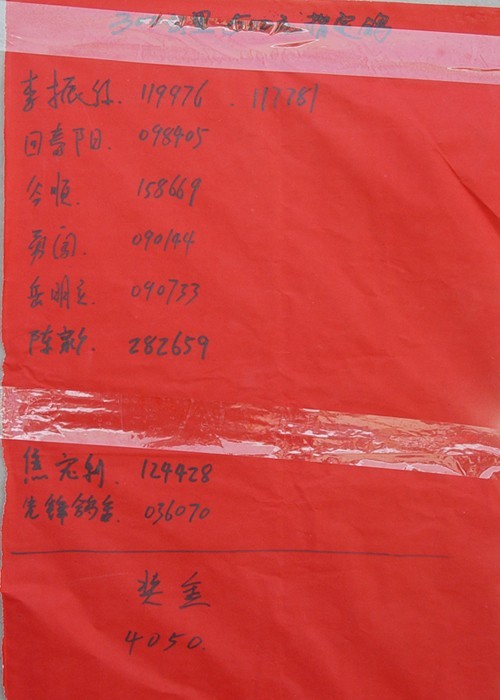 指定鸽
李振 119976 . 117781
回春阳. 098405
谷恒. 158669
勇闯. 090144
岳明 090733
陈 282659
焦宏利. 124428
先锋鸽舍. 036070
奖金
4050.